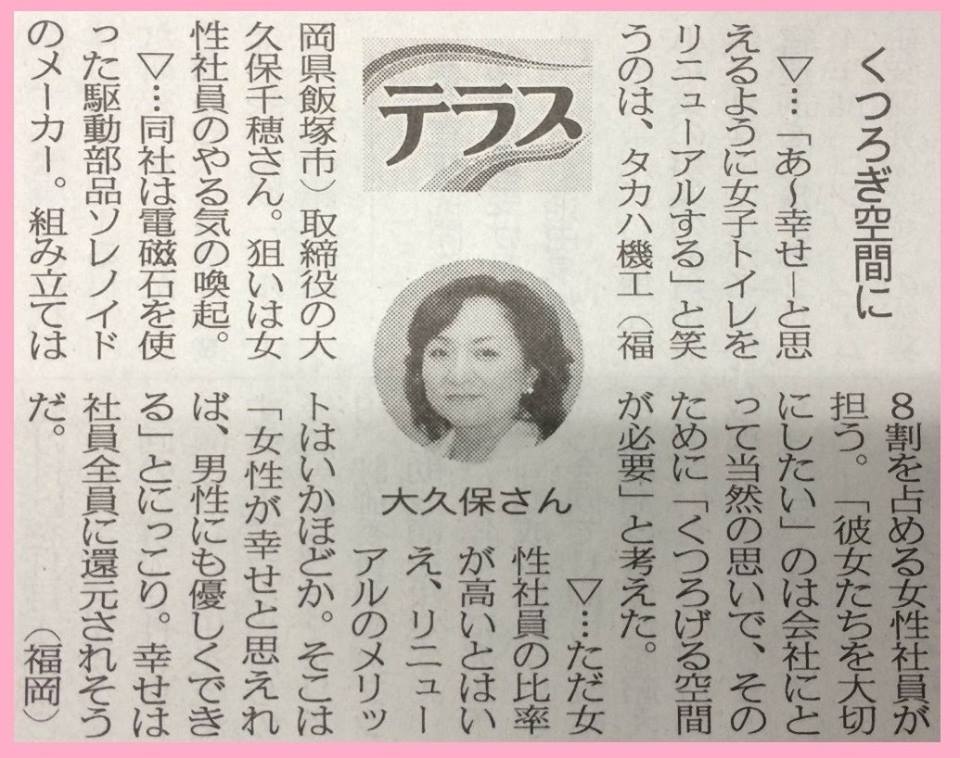 くつろぎ空間に
テラス
▽…「あ〜幸せ―と思
えるように女子トイレを
リニューアルする」と笑
うのは、タカハ機工（福
岡県飯塚市）取締役の大
久保千穂さん。狙いは女
性社員のやる気の喚起。
▽…同社は電磁石を使
った駆動部品ソレノイド
のメーカー。組み立ては
8割を占める女性社員が
担う。「彼女たちを大切
にしたい」のは会社にと
って当然の思いで、その
ために「くつろげる空間
が必要」と考えた。
▽…ただ女
性社員の比率
が高いとはい
え、リニュー
アルのメリッ
トはいかほどか。そこは
「女性が幸せと思えれ
ば、男性にも優しくでき
る」とにっこり。幸せは
社員全員に還元されそう
だ。
（福岡）
大久保さん